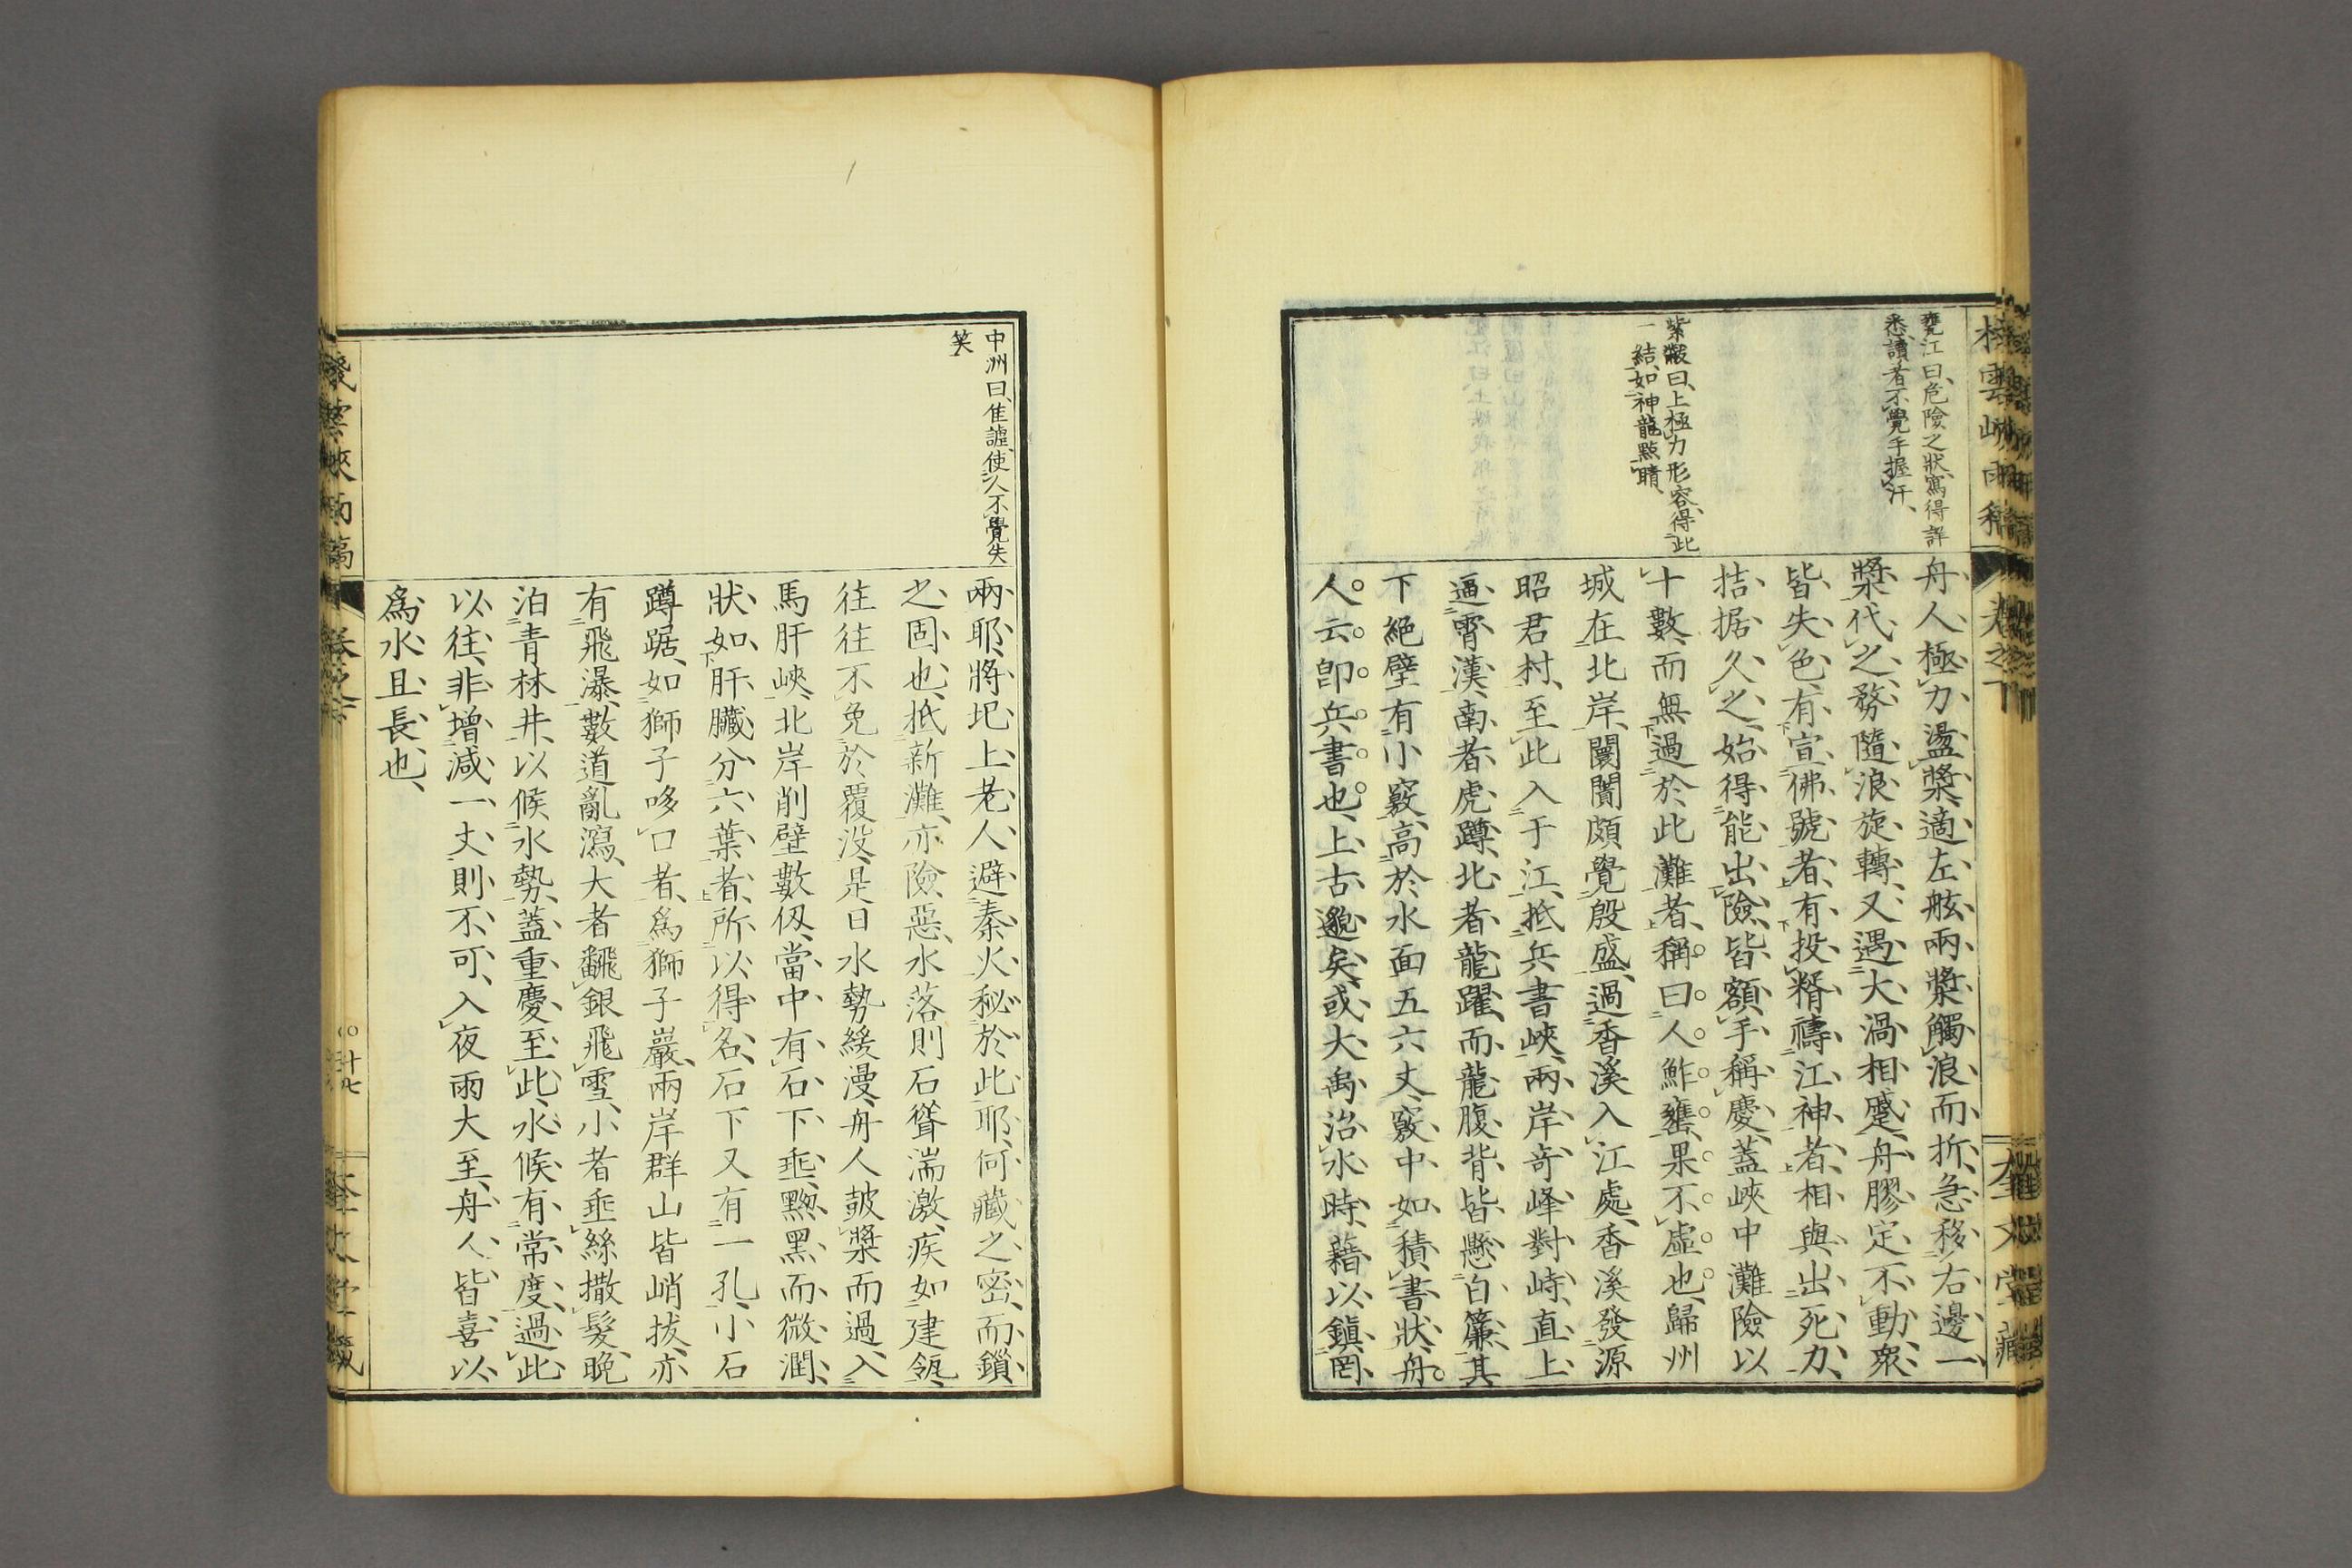 甕江曰、危險之狀、寫得詳
悉、讀者不覺手握汗、
紫巖曰、上極力形容、得此
一結、如神龍點睛、
舟人極力盪槳、適左舷兩槳觸浪而折、急移右邊一
槳代之、務隨浪旋轉、又遇大渦相蹙、舟膠定不動、衆
皆失色、有宣佛號者、有投糈禱江神者、相與出死力、
拮据久之、始得能出險、皆額手稱慶、蓋峽中灘險以
十數、而無過於此灘者、稱曰人鮓甕、果不虛也、歸州
城在北岸、闤闠頗覺殷盛、過香溪入江處、香溪發源
昭君村、至此入于江、抵兵書峽、兩岸奇峰對峙、直上
逼霄漢、南者虎蹲、北者龍躍、而龍腹背皆懸白簾、其
下絕壁有小竅、高於水面五六丈、竅中如積書狀、舟
人云、卽兵書也、上古邈矣、或大禹治水時、藉以鎭罔
棧雲峽雨稿
卷之下
奎文堂藏
中洲曰、隹謔、使人不覺失
笑
兩耶、將圯上老人、避秦火秘於此耶、何藏之密、而鎖
之固也、抵新灘、亦險惡、水落則石聳湍激、疾如建瓴、
往往不免於覆沒、是日水勢緩漫、舟人鼓槳而過、入
馬肝峽、北岸削壁數仭、當中有石下垂、黝黑而微潤、
狀如肝臟分六葉者、所以得名、石下又有一孔、小石
蹲踞、如獅子哆口者、爲獅子巖、兩岸群山皆峭拔、亦
有飛瀑、數道亂瀉、大者飜銀飛雪、小者垂絲撒髮、晚
泊青林井、以候水勢、蓋重慶至此、水候有常度、過此
以往、非增减一丈、則不可、入夜雨大至、舟人皆喜以
爲水且長也、
十七